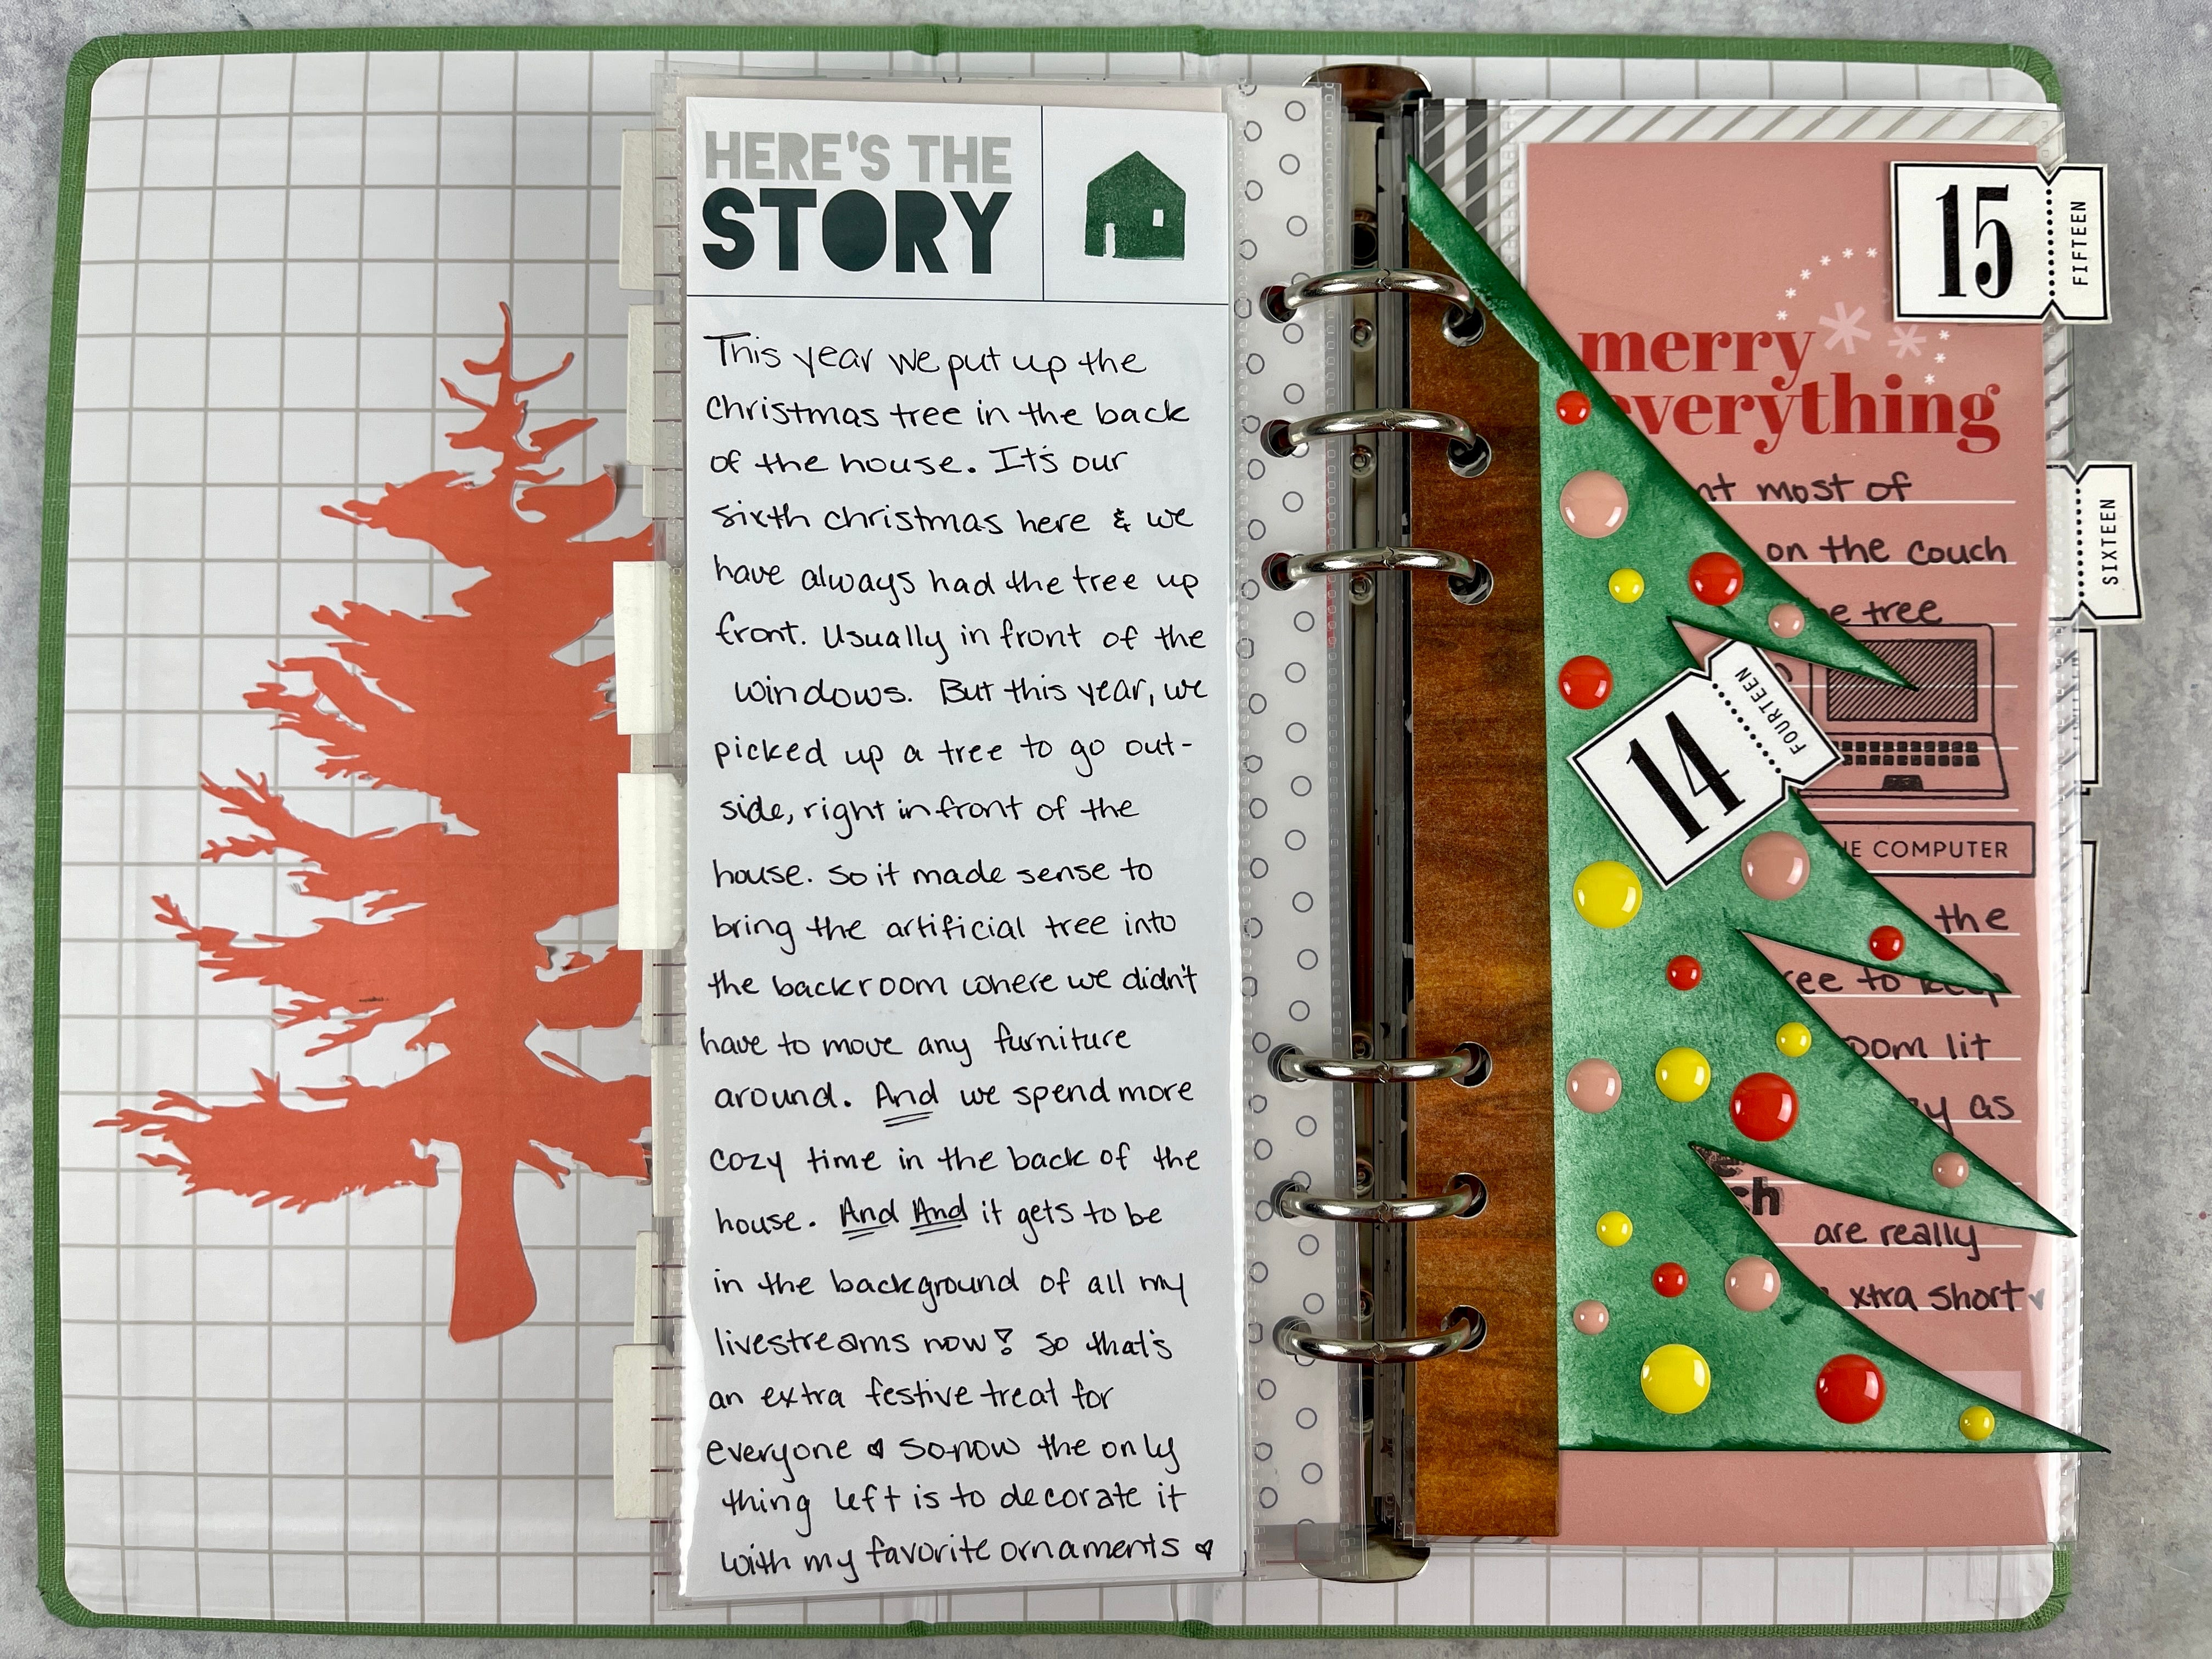 HERE'S THE
STORY
This year we put up the
Christmas tree in the back
of the house. It's our
sixth christmas here & we
have always had the tree up
front. Usually in front of the
windows. But this year, we
picked up a tree to go out-
side, right in front of the
house. So it made sense to
bring the artificial tree into
the backroom where we didn't
have to move any furniture
around. And we spend more
cozy time in the back of the
house. And And it gets to be
in the background of all my
livestreams now! So that's
an extra festive treat for
everyone ♥ So now the only
thing left is to decorate it
with my favorite ornaments ♥
15 FIFTEEN
merry
everything
nt most of
on the couch
SIXTEEN
e tree
14 FOURTEEN
E COMPUTER
the
ee to keep
oom lit
y as
ch
are really
xtra short ♥